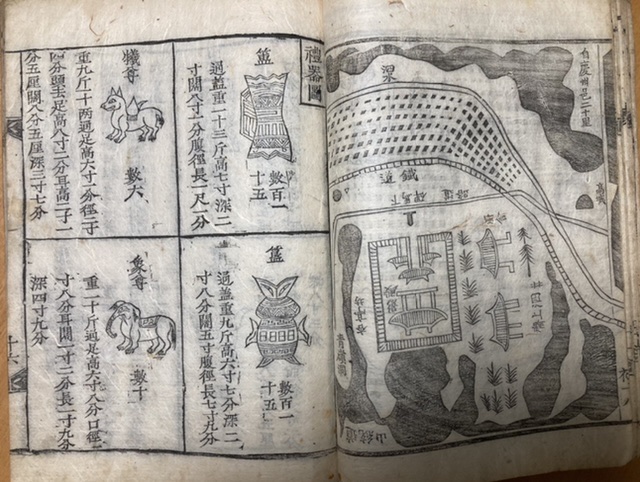 自慶州邑二十里
梁
鐵道
道路
下馬碑
禮器圖
簠
數百一
十五
通蓋重一十三斤高七寸深二
寸闊八寸一分腹徑長一尺一分
簋
數百一
十五
通蓋重九斤高六寸七分深二
寸八分闊五寸腹徑長七寸九分
犧尊
數六
重九斤十兩通足高六寸一分徑二寸
四分頭至足高八寸二分耳高二寸一
分五厘闊八分五厘深三寸七分
象尊
數十
重一十斤通足高六寸八分口徑一
寸八分耳闊一寸二分長一寸九分
深四寸九分